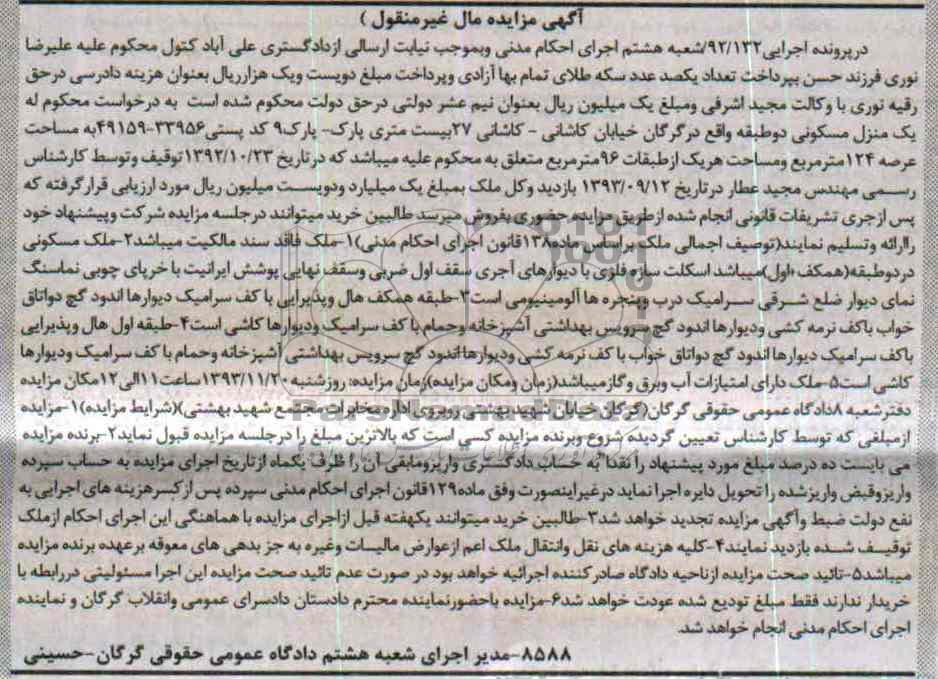 آگهی مزایده مال غیرمنقول )
درپرونده اجرایی۹۲/۱۳۲/شعبه هشتم اجرای احکام مدنی وبموجب نیابت ارسالی ازدادگستری علی آباد کتول محکوم علیه علیرضا
نوری فرزند حسن بپرداخت تعداد یکصد عدد سکه طلای تمام بها آزادی وپرداخت مبلغ دویست ویک هزارریال بعنوان هزینه دادرسی درحق
رقیه نوری با وکالت مجید اشرفی ومبلغ یک میلیون ریال بعنوان نیم عشر دولتی درحق دولت محکوم شده است به درخواست محکوم له
یک منزل مسکونی دوطبقه واقع درگرگان خیابان کاشانی - کاشانی ۲۷بیست متری پارک- پارک۹ کد پستی۳۳۹۵۶-۴۹۱۵۹به مساحت
عرصه ۱۲۴مترمربع ومساحت هریک ازطبقات ۹۶مترمربع متعلق به محکوم علیه میباشد که درتاریخ ۱۳۹۲/۱۰/۲۳توقیف وتوسط کارشناس
رسمی مهندس مجید عطار درتاریخ ۱۳۹۳/۰۹/۱۲ بازدید وکل ملک بمبلغ یک میلیارد ودویست میلیون ریال مورد ارزیابی قرارگرفته که
پس ازجری تشریفات قانونی انجام شده ازطریق مزایده حضوری بفروش میرسد طالبین خرید میتوانند درجلسه مزایده شرکت وپیشنهاد خود
راارائه وتسلیم نمایند(توصیف اجمالی ملک براساس ماده۱۳۸قانون اجرای احکام مدنی)۱-ملک فاقد سند مالکیت میباشد۲-ملک مسکونی
دردوطبقه(همکف+اول)میباشد اسکلت سازه فلزی با دیوارهای آجری سقف اول ضربی وسقف نهایی پوشش ایرانیت با خرپای چوبی نماسنگ
نمای دیوار ضلع شرقی سرامیک درب وپنجره ها آلومینیومی است۳-طبقه همکف هال وپذیرایی با کف سرامیک دیوارها اندود گچ دواتاق
خواب باکف نرمه کشی ودیوارها اندود گچ سرویس بهداشتی آشپزخانه وحمام با کف سرامیک ودیوارها کاشی است۴-طبقه اول هال وپذیرایی
باکف سرامیک دیوارها اندود گچ دواتاق خواب با کف نرمه کشی ودیوارهااندود گچ سرویس بهداشتی آشپزخانه وحمام با کف سرامیک ودیوارها
کاشی است۵-ملک دارای امتیازات آب وبرق وگازمیباشد(زمان ومکان مزایده)زمان مزایده: روزشنبه۱۳۹۳/۱۱/۲۰ساعت۱۱الی۱۲مکان مزایده
دفترشعبه ۸دادگاه عمومی حقوقی گرگان(گرگان خیابان شهید بهشتی روبروی اداره مخابرات مجتمع شهید بهشتی)(شرایط مزایده)۱-مزایده
ازمبلغی که توسط کارشناس تعیین گردیده شروع وبرنده مزایده کسی است که بالاترین مبلغ را درجلسه مزایده قبول نماید۲-برنده مزایده
می بایست ده درصد مبلغ مورد پیشنهاد را نقدا" به حساب دادگستری واریزومابقی آن را ظرف یکماه ازتاریخ اجرای مزایده به حساب سپرده
واریزوقبض واریزشده را تحویل دایره اجرا نماید درغیراینصورت وفق ماده۱۲۹قانون اجرای احکام مدنی سپرده پس ازکسرهزینه های اجرایی به
نفع دولت ضبط وآگهی مزایده تجدید خواهد شد۳-طالبین خرید میتوانند یکهفته قبل ازاجرای مزایده با هماهنگی این اجرای احکام ازملک
توقیف شده بازدید نمایند۴-کلیه هزینه های نقل وانتقال ملک اعم ازعوارض مالیات وغیره به جز بدهی های معوقه برعهده برنده مزایده
میباشد۵-تائید صحت مزایده ازناحیه دادگاه صادرکننده اجرائیه خواهد بود در صورت عدم تائید صحت مزایده این اجرا مسئولیتی دررابطه با
خریدار ندارند فقط مبلغ تودیع شده عودت خواهد شد۶-مزایده باحضورنماینده محترم دادستان دادسرای عمومی وانقلاب گرگان و نماینده
اجرای احکام مدنی انجام خواهد شد.
۸۵۸۸-مدیر اجرای شعبه هشتم دادگاه عمومی حقوقی گرگان-حسینی